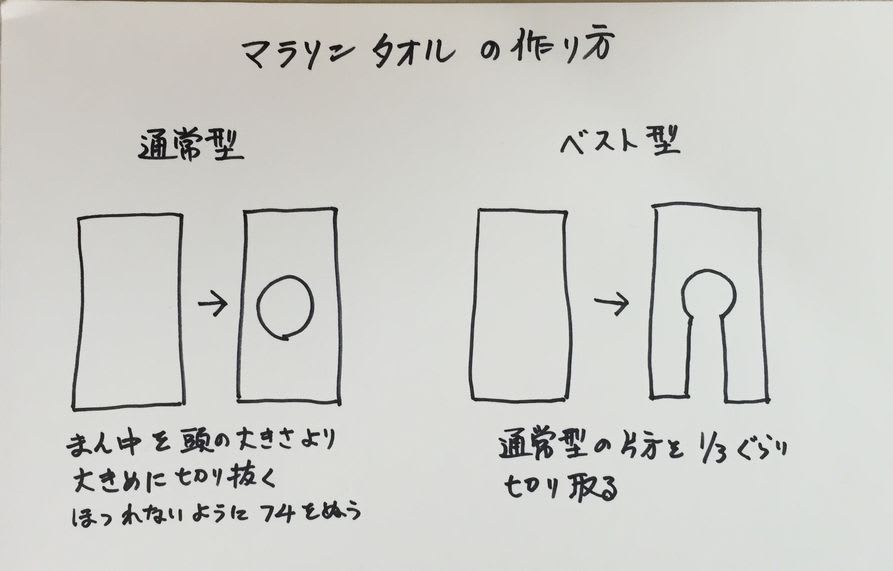 マラソンタオルの作り方
通常型
まん中を頭の大きさより
大きめに切り抜く
ほつれないようにフチをぬう
ベスト型
通常型の片方を1/3ぐらい
切り取る